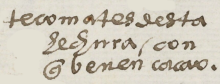 tecomates desta
hechura, con
q̃ beuen cacao.